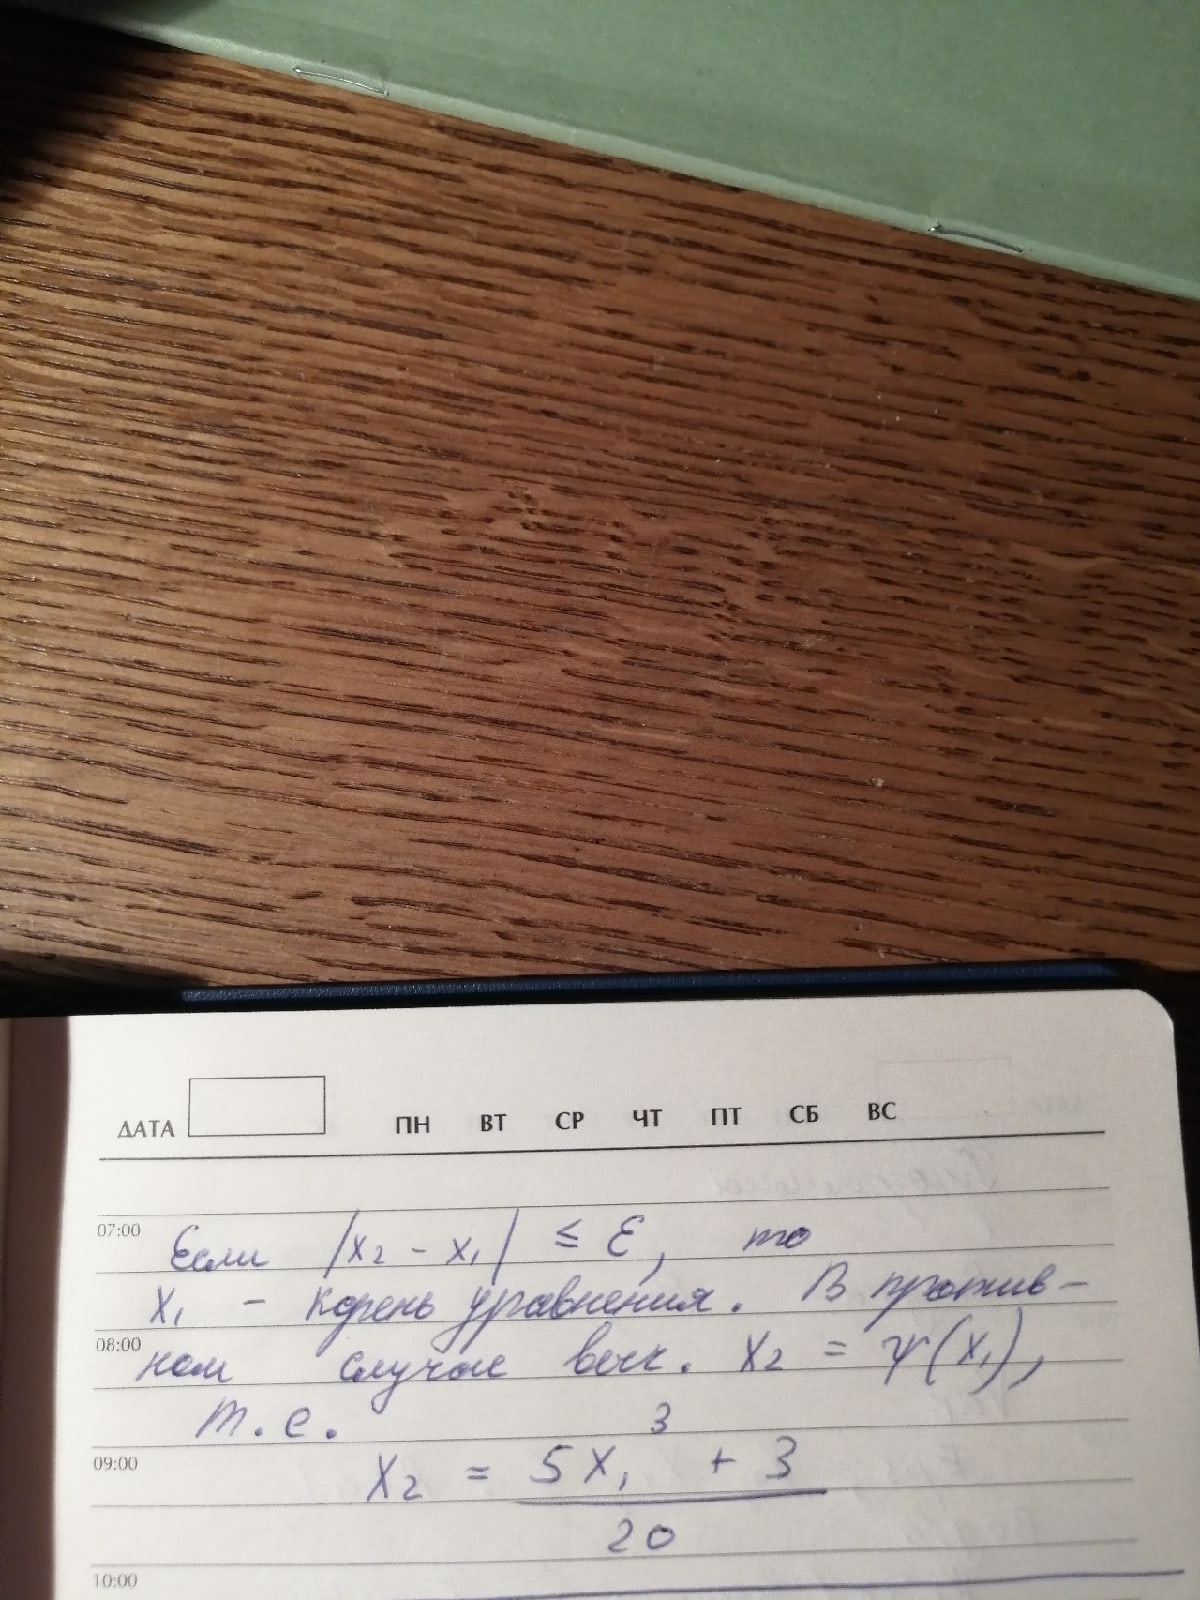 ДАТА ПН ВТ СР ЧТ ПТ СБ ВС
07:00
Если |x₂ - x₁| ≤ ε, то
x₁ - корень уравнения. В против-
08:00
ном случае выч. x₂ = ψ(x₁),
т.е.
09:00
x₂ = (5x₁³ + 3) / 20
10:00